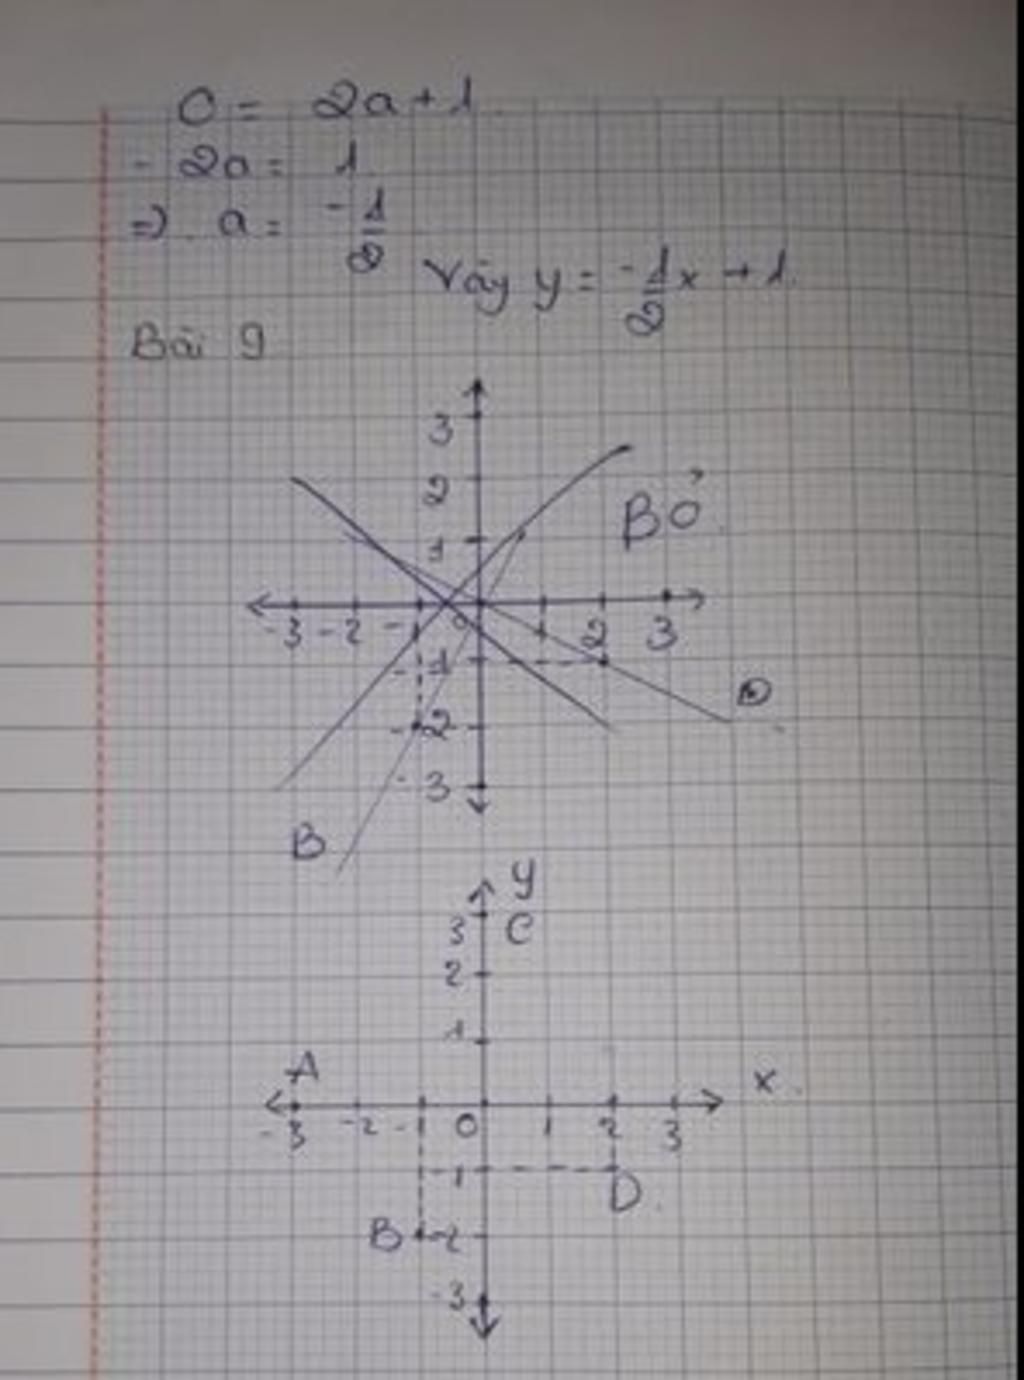 0 = 2a + 1
- 2a = 1
=> a = -1/2
Vậy y = -1/2 x + 1
Bài 9
3
2
BỎ
1
-3 -2 -1 0 2 3
-1
D
-2
-3
B
y
3 C
2
1
A
x
-3 -2 -1 0 1 2 3
-1
D
B -2
-3